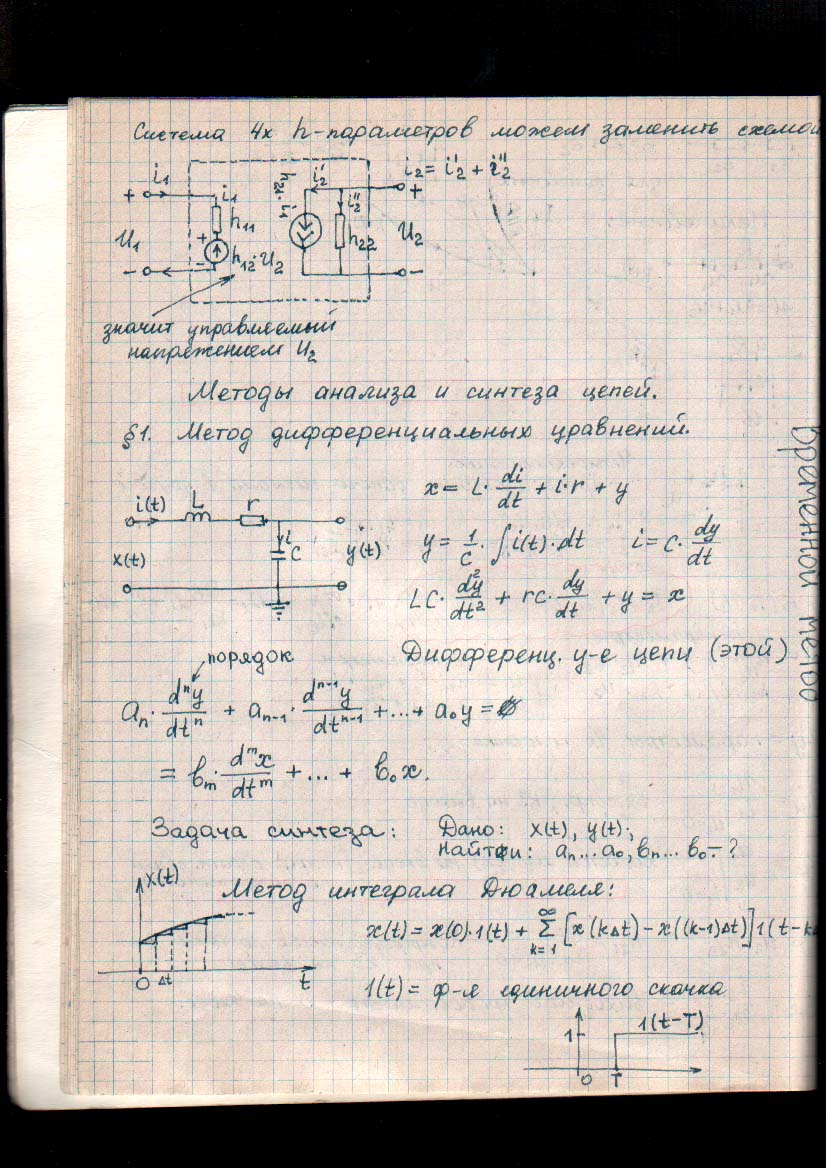 Система 4х h-параметров можем заменить схемой
i₁ i₁ h₂₁·i₁ i₂' i₂''
i₂ = i₂' + i₂''
+ h₁₁ +
U₁ + h₂₂ U₂
- - h₁₂·U₂ -
значит управляемый
напряжением U₂
Методы анализа и синтеза цепей.
§1. Метод дифференциальных уравнений.
x = L· di/dt + i·r + y
i(t) L r
i C
x(t) y(t)
y = 1/C · ∫i(t)·dt i = C· dy/dt
LC· d²y/dt² + rC· dy/dt + y = x
порядок
Дифференц. у-е цепи (этой)
aₙ· dⁿy/dtⁿ + aₙ₋₁· dⁿ⁻¹y/dtⁿ⁻¹ + ... + a₀y =
= вₘ· dᵐx/dtᵐ + ... + в₀x.
Задача синтеза: Дано: x(t), y(t);
Найти: aₙ...a₀, вₙ... в₀ - ?
x(t)
Метод интеграла Дюамеля:
x(t) = x(0)·1(t) + ∞ Σ k=1 [x(kΔt) - x((k-1)Δt)]1(t-k
0 Δt t
1(t) = ф-я единичного скачка
1 1(t-T)
0 T
Временной метод